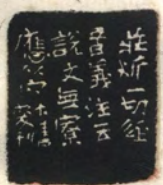 莊炘一切經
音義注云
說文無寮
應